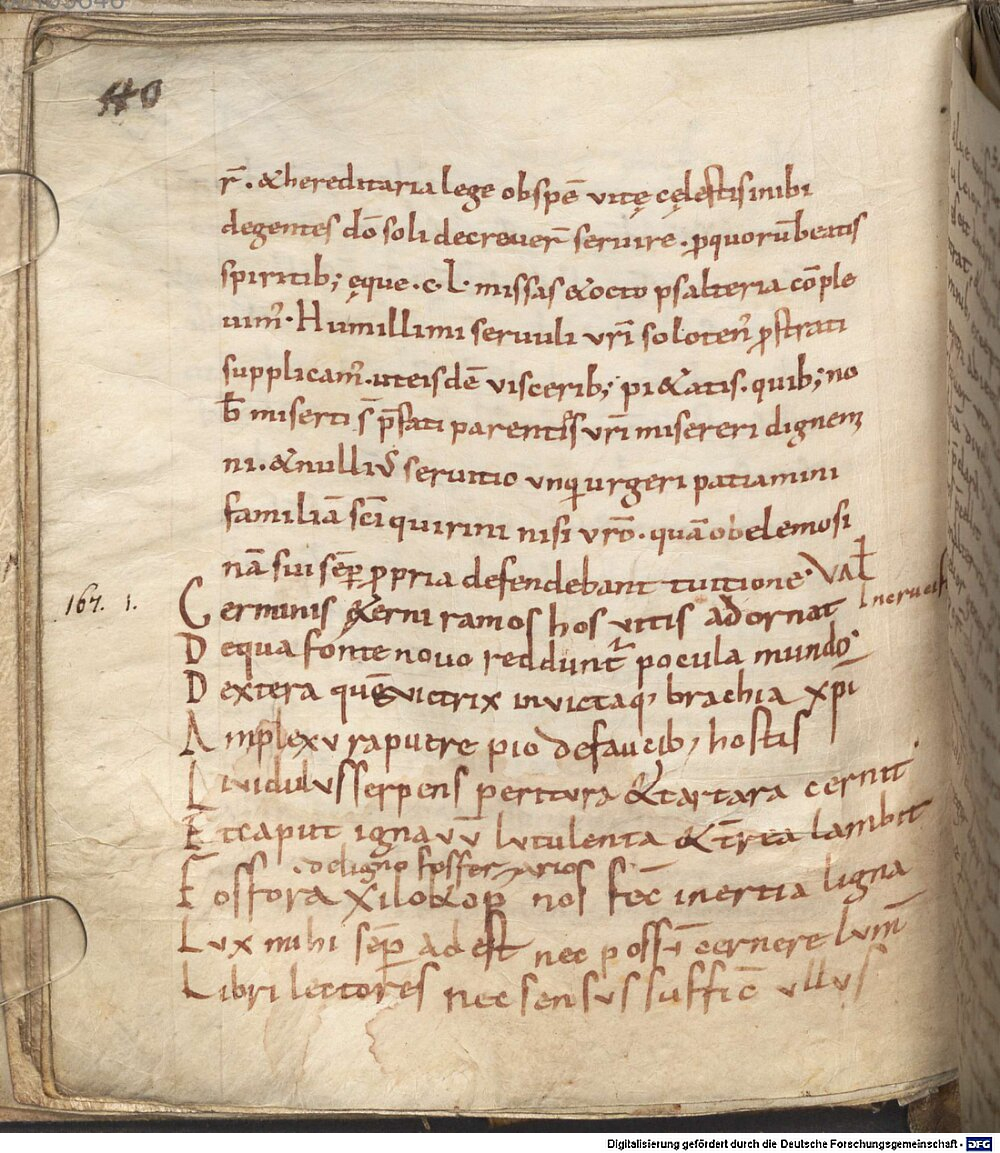 110
r̄. &hereditaria lege obspē vitę cęlestis inibi
degentes dō soli decreuer̄ seruire. ꝑquorūbeatis
spiritib; ęque .c.L. missas &octo psalteria cōple
uim᷒. Humillimi seruuli vr̄i soloten᷒ ꝓstrati
supplicam᷒. uteisdē viscerib; pi&atis. quib; no
b̄ miserti s̄ p̄fati parentes vr̄i misereri dignem
ni. &nulli᷒ seruitio vnq̄ urgeri patiamini
familiā sc̄i quirini nisi vr̄o. quāobelemosi
nā sui sēꝑ ꝓpria defendebant tuitione. VAł
167. 1. Germinis &erni ramos hos vitis adornat Incruci
Dequa fonte nouo reddunt᷒ pocula mundo.
Dextera quē victrix inuictaq; brachia xp̄i
Amplexv rapuere pio defaucib; hostis
Liuidulus serpens peritvra &tartara cernit.
Etcaput ignavv̄ lvtulenta &t̄rea lambit
.deligno fosser
Fossora Xilo nos fec̄ inertia ligna
Lvx mihi sēꝑ adest nec possū cernere lvm̄
Libri lectores nec sensvs suffic̄ vllvs
Digitalisierung gefördert durch die Deutsche Forschungsgemeinschaft - DFG